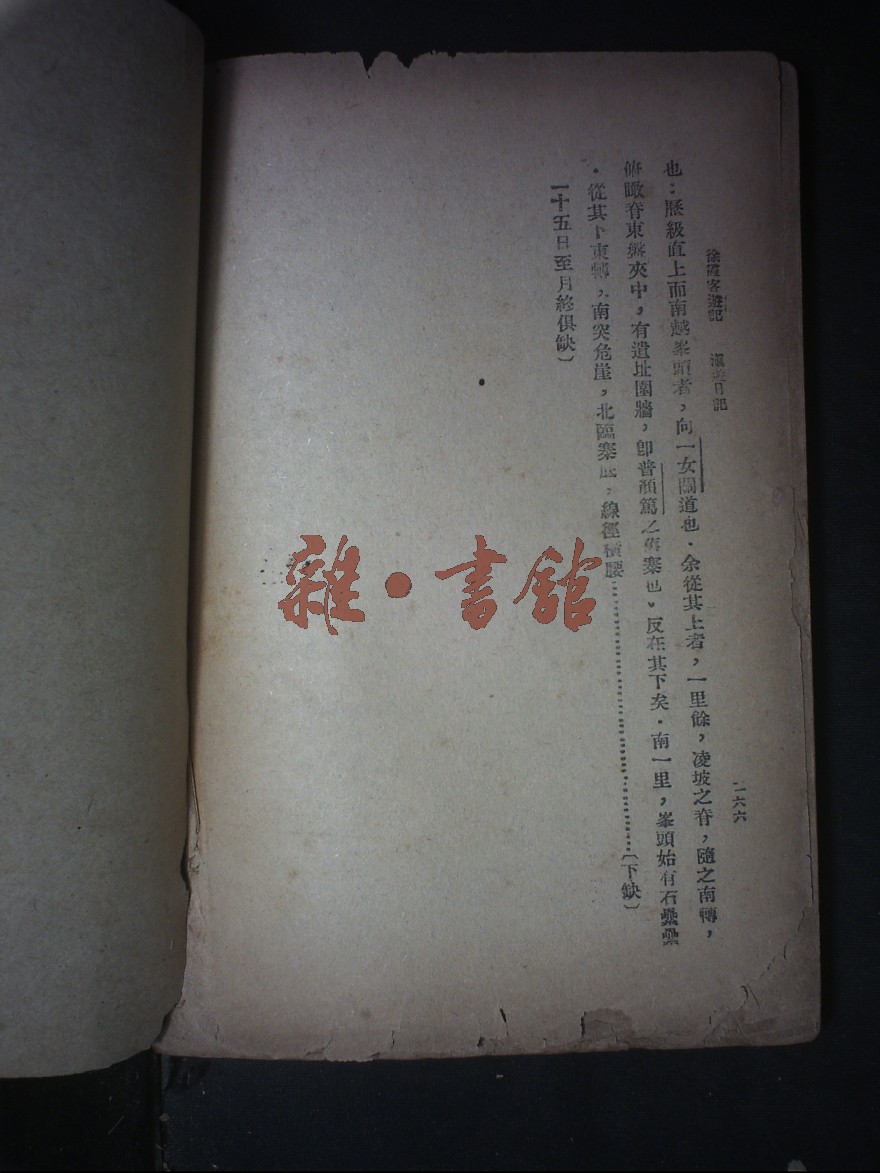 徐霞客遊記 滇遊日記
一六六
也；歷級直上而南越峯頭者，向一女關道也．余從其上者，一里餘，凌坡之脊，隨之南轉，
俯瞰脊東盤夾中，有遺址圍牆，卽普顏篤之舊寨也，反在其下矣．南一里，峯頭始有石纍纍
．從其下東轉，南突危崖，北臨寨底，線徑橫腰……………………〔下缺〕
一十五日至月終俱缺〕
雜·書館